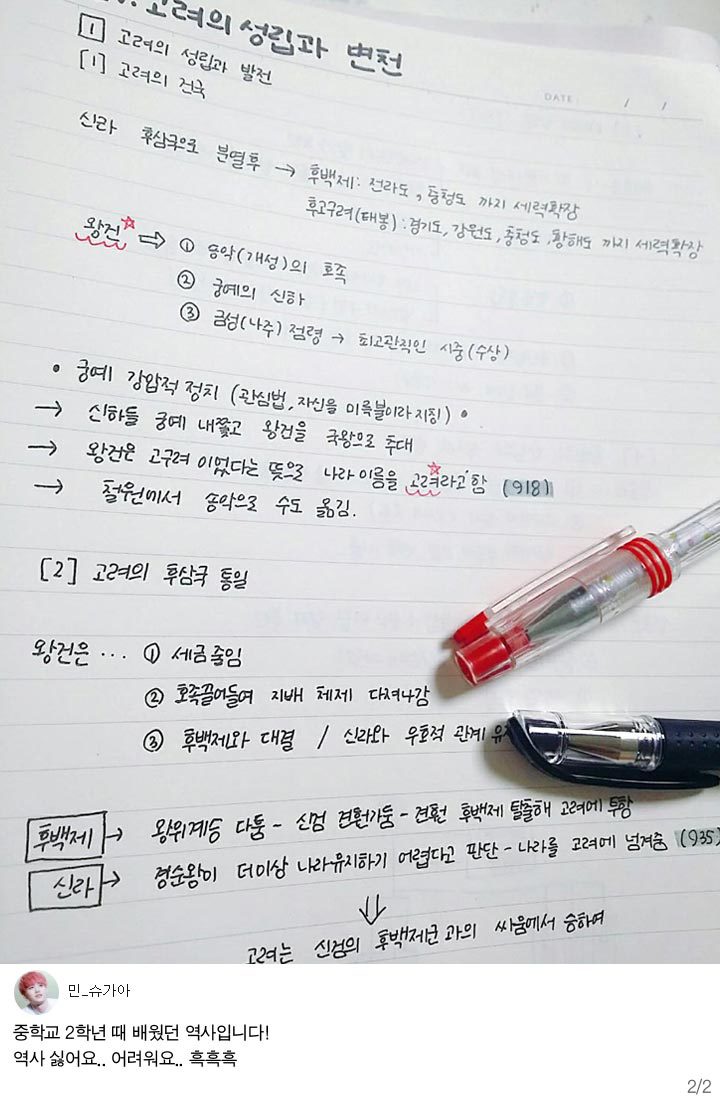 고려의 성립과 변천
1 고려의 성립과 발전
[1] 고려의 건국
DATE: / /
신라 후삼국으로 분열후 → 후백제: 전라도, 충청도 까지 세력확장
후고구려(태봉): 경기도, 강원도, 충청도, 황해도 까지 세력확장
왕건☆ ⇒ ① 송악(개성)의 호족
② 궁예의 신하
③ 금성(나주) 점령 → 최고관직인 시중(수상)
• 궁예 강압적 정치 (관심법, 자신을 미륵불이라 지칭) •
→ 신하들 궁예 내쫓고 왕건을 국왕으로 추대
→ 왕건은 고구려 이었다는 뜻으로 나라 이름을 고려☆라고 함 (918)
→ 철원에서 송악으로 수도 옮김.
[2] 고려의 후삼국 통일
왕건은 ... ① 세금줄임
② 호족끌어들여 지배 체제 다져나감
③ 후백제와 대결 / 신라와 우호적 관계
후백제 → 왕위계승 다툼 - 신검 견훤가둠 - 견훤 후백제 탈출해 고려에 투항
신라 → 경순왕이 더이상 나라유지하기 어렵다고 판단 - 나라를 고려에 넘겨줌 (935)
⇓
고려는 신검의 후백제군과의 싸움에서 승하여
민_슈가아
중학교 2학년 때 배웠던 역사입니다!
역사 싫어요.. 어려워요.. 흑흑흑
2/2